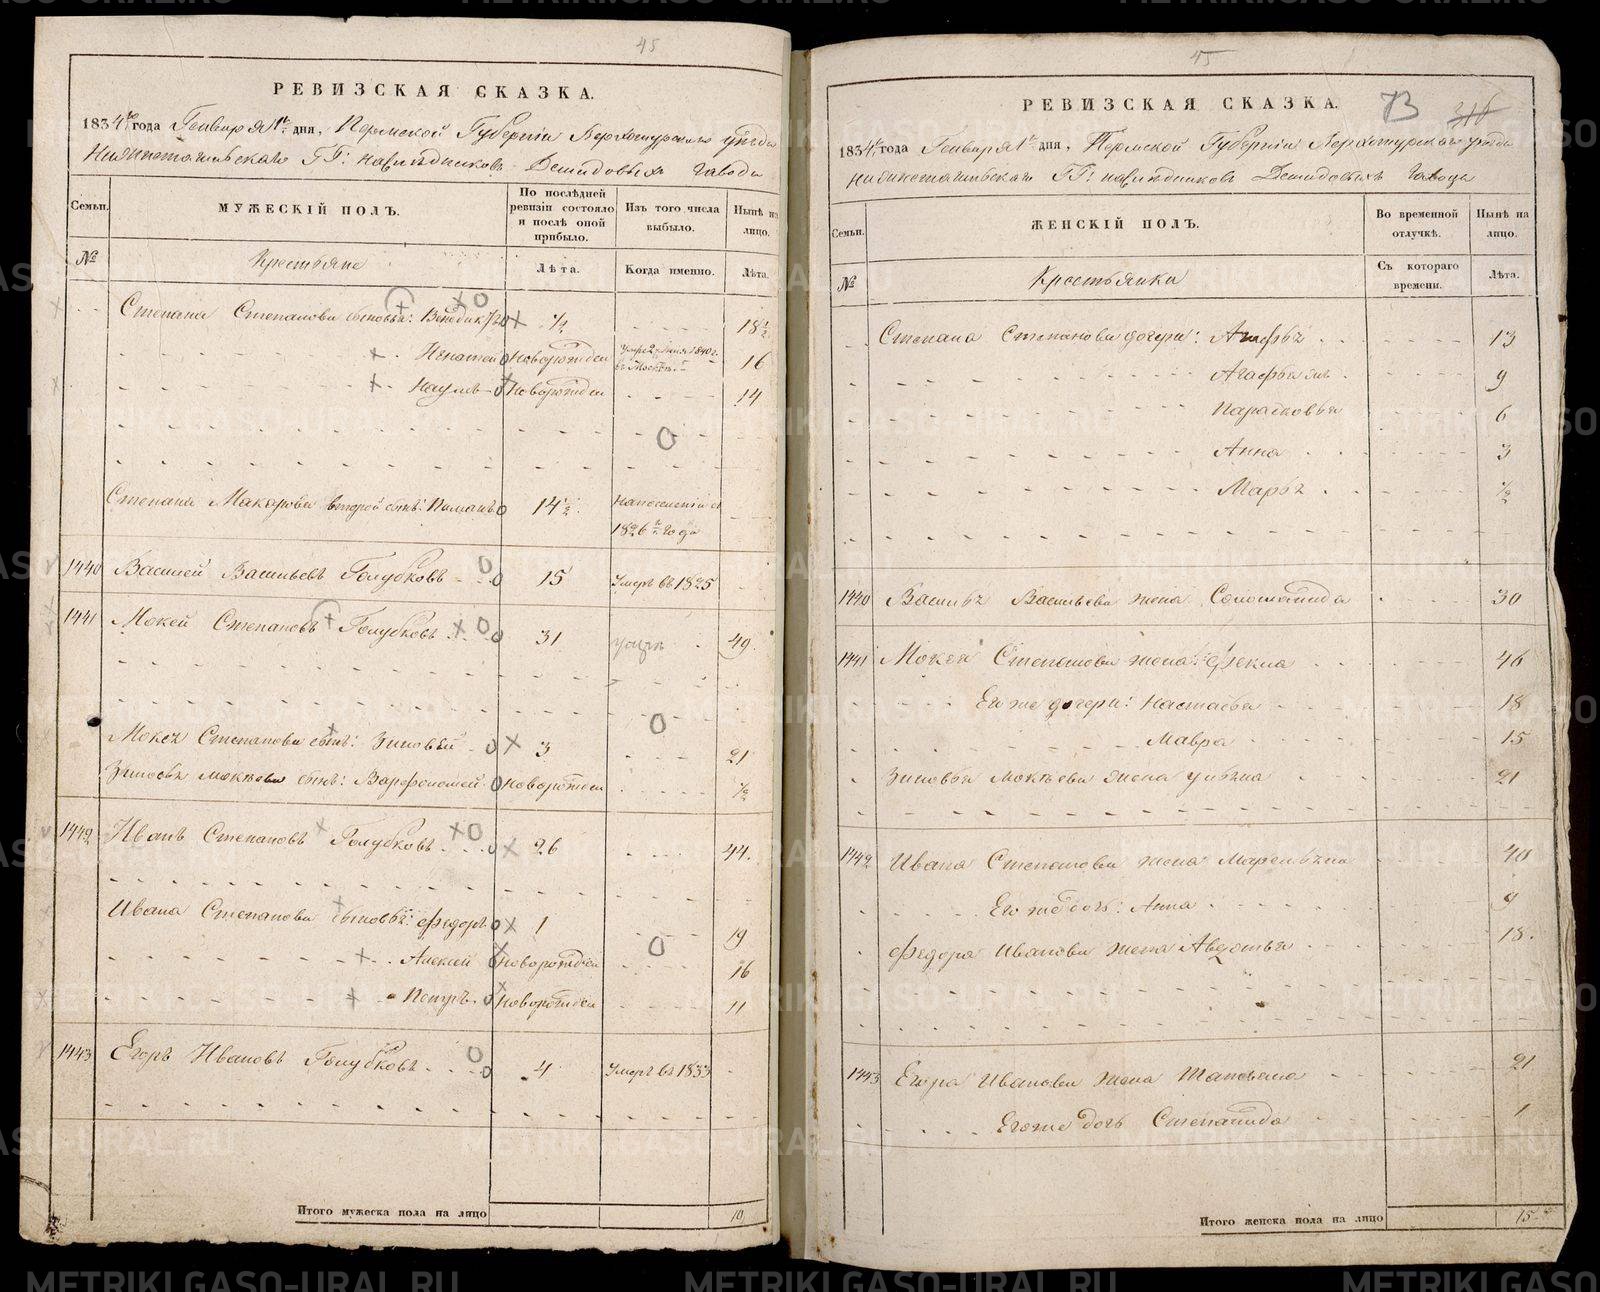 45
РЕВИЗСКАЯ СКАЗКА.
1834 года Генваря 1 дня, Пермской Губернiи Верхотурскаго уѣзда
Нижнетагильскаго ГГ: наслѣдниковъ Демидовыхъ Завода
Семьи.
МУЖЕСКIЙ ПОЛЪ.
По послѣдней ревизiи состояло и послѣ оной прибыло.
Изъ того числа выбыло.
Нынѣ на лицо.
№
Крестьяне
Лѣта.
Когда именно.
Лѣта.
Степана Степанова сыновья: Венедикт ½ 18½
Игнатей новорожден 16
Умре 2 1840 г. въ
Наумъ новорожден 14
Степана Макарова второй сынъ: 14½
1826 года
1440 Василей Васильевъ Голубковъ 15 Умеръ въ 1825
1441 Мокей Степановъ Голубковъ 31 49
Мокея Степанова сынъ: Зиновей 3 21
Зиновья Мокѣева сынъ: Варфоломей новорожден ½
1442 Иванъ Степановъ Голубковъ 26 44
Ивана Степанова сыновья: Федоръ 1 19
Алексей новорожден 16
Петръ новорожден 11
1443 Егоръ Ивановъ Голубковъ 4 Умеръ въ 1833
Итого мужеска пола на лицо 10
45
73
РЕВИЗСКАЯ СКАЗКА.
1834 года Генваря 1 дня, Пермской Губернiи Верхотурскаго уѣзда
Нижнетагильскаго ГГ: наслѣдниковъ Демидовыхъ Завода
Семьи.
ЖЕНСКIЙ ПОЛЪ.
Во временной отлучкѣ.
Нынѣ на лицо.
№
Крестьянка
Съ котораго времени.
Лѣта.
Степана Степанова дочери: 13
9
Парасковья 6
Анна 3
Марья ½
1440 Василья Васильева жена Соломонида 30
1441 Мокея Степанова жена: Фекла 46
Его же дочери: Настасья 18
Мавра 15
Зиновья Мокѣева жена Ульяна 21
1442 Ивана Степанова жена Маремьяна 40
Его же дочь: Анна 9
Федора Иванова жена Авдотья 18
1443 Егора Иванова жена Татьяна 21
Его же дочь Степанида 1
Итого женска пола на лицо 15
METRIKI.GASO-URAL.RU